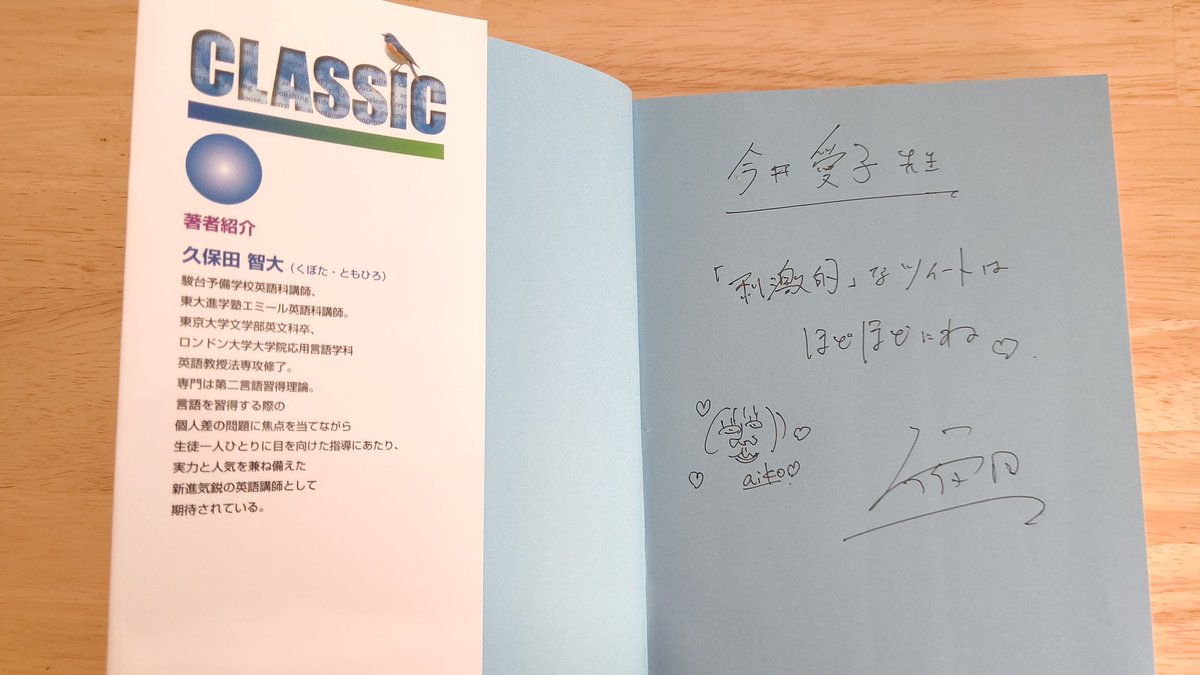 CLASSIC
著者紹介
久保田 智大（くぼた・ともひろ）
駿台予備学校英語科講師、
東大進学塾エミール英語科講師。
東京大学文学部英文科卒、
ロンドン大学大学院応用言語学科
英語教授法専攻修了。
専門は第二言語習得理論。
言語を習得する際の
個人差の問題に焦点を当てながら
生徒一人ひとりに目を向けた指導にあたり、
実力と人気を兼ね備えた
新進気鋭の英語講師として
期待されている。
今井 愛子 先生
「刺激的」なツイートは
ほどほどにね♡.
aiko♡